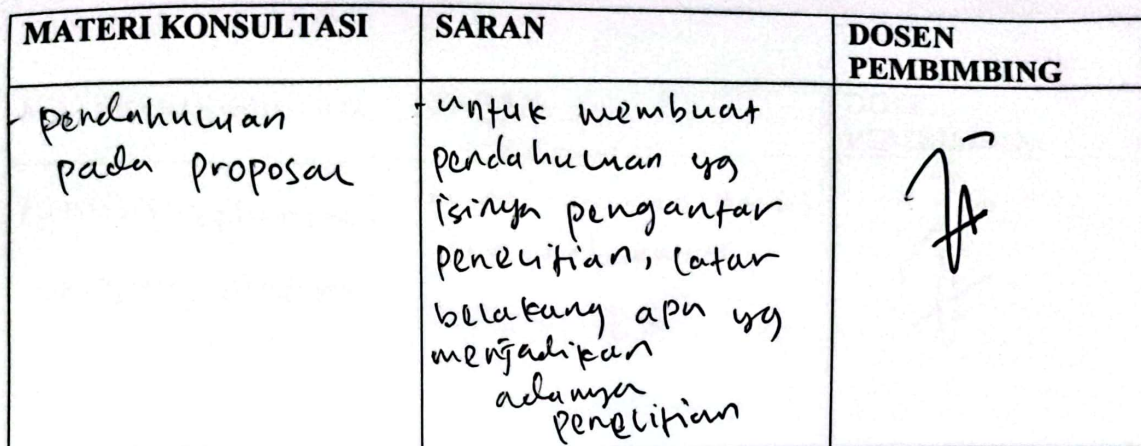 MATERI KONSULTASI
SARAN
DOSEN
PEMBIMBING
- pendahuluan
pada proposal
- untuk membuat
pendahuluan yg
isinya pengantar
penelitian, latar
belakang apa yg
menjadikan
adanya
penelitian